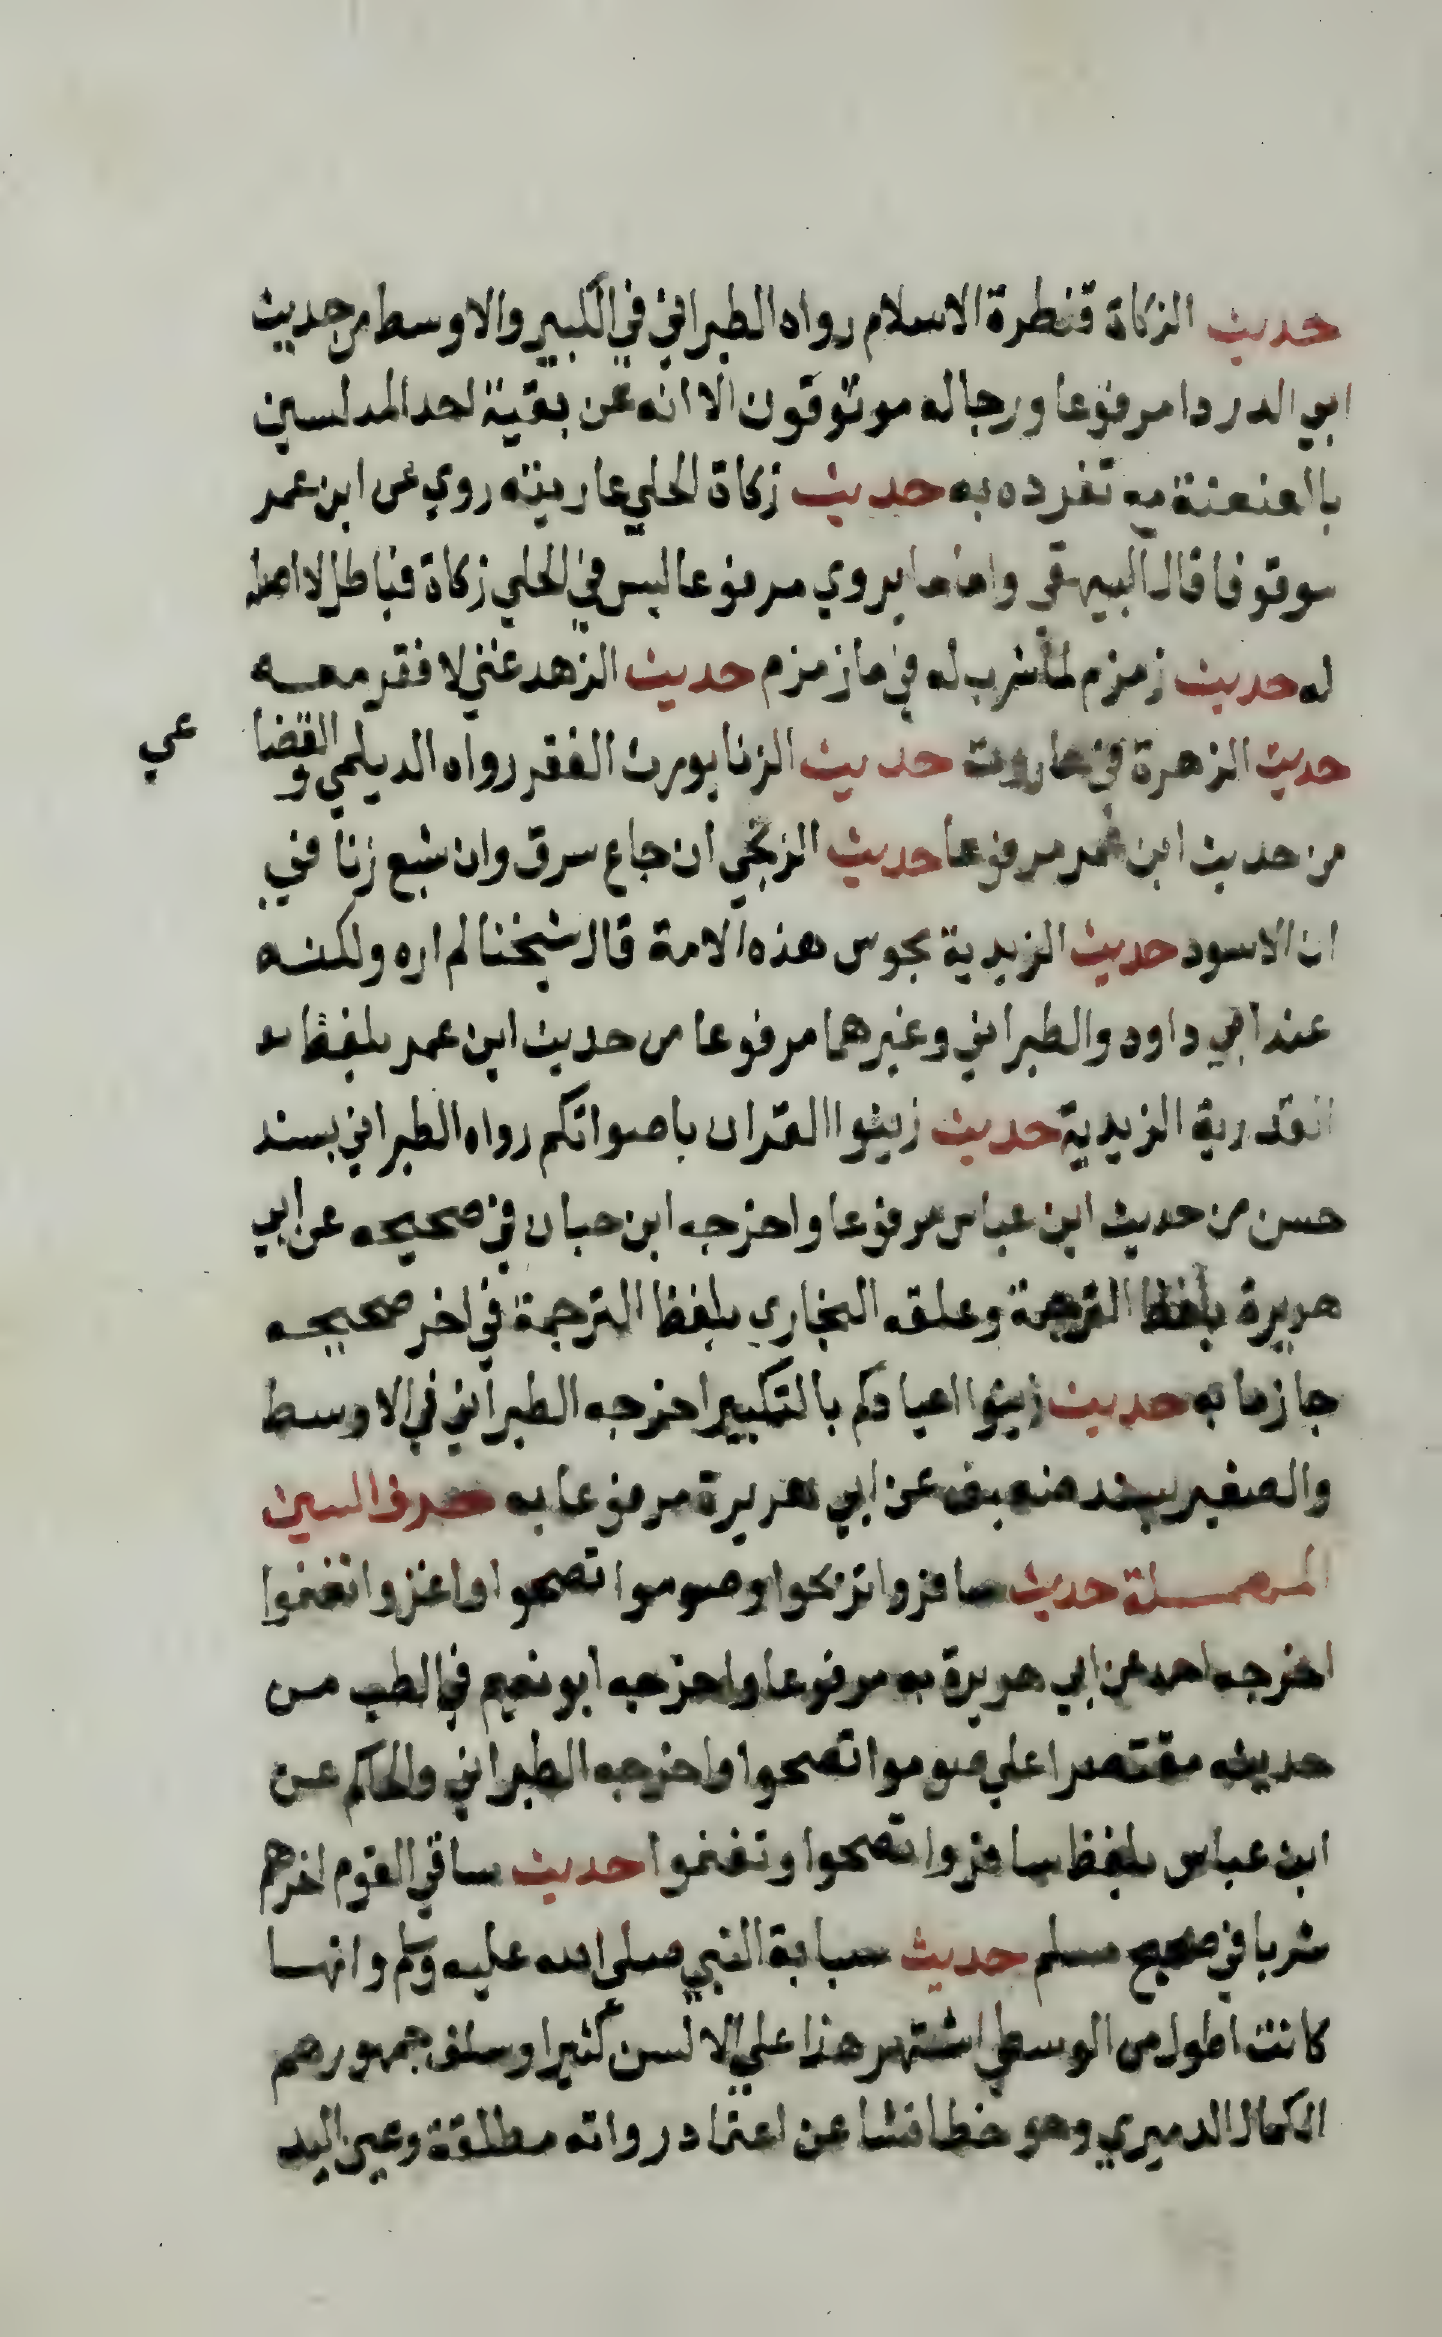 حديث الزكاة قنطرة الاسلام رواه الطبراني في الكبير والاوسط من حديث
ابي الدردا مرفوعا ورجاله موثوقون الا انه عن بقية احد المدلسين
بالعنعنة تفرده به حديث زكاة الحلي عاريته روي عن ابن عمر
موقوفا قال البيهقي واما ما يروي مرفوعا ليس في الحلي زكاة فباطل لا اصل
له حديث زمزم لما شرب له في ما زمزم حديث الزهد غني لا فقر معه
حديث الزهرة في هاروت حديث الزنا يورث الفقر رواه الديلمي والقضا
عي
من حديث ابن عمر مرفوعا حديث الزنجي ان جاع سرق وان شبع زنا في
ان الاسود حديث الزيدية مجوس هذه الامة قال شيخنا لم اره ولكنه
عند ابي داود والطبراني وغيرهما مرفوعا من حديث ابن عمر بلفظ
القدرية الزيدية حديث زينوا القران باصواتكم رواه الطبراني بسند
حسن من حديث ابن عباس مرفوعا واخرجه ابن حبان في صحيحه عن ابي
هريرة بلفظ الترجمة وعلقه البخاري بلفظ الترجمة في اخر صحيحه
جازما به حديث زينوا اعيادكم بالتكبير اخرجه الطبراني في الاوسط
والصغير بسند ضعيف عن ابي هريرة مرفوعا به حرف السين
المهملة حديث سافروا تربحوا وصوموا تصحوا واغزوا تغنموا
اخرجه احمد عن ابي هريرة به مرفوعا واخرجه ابو نعيم في الطب من
حديثه مقتصرا علي صوموا تصحوا واخرجه الطبراني والحاكم عن
ابن عباس بلفظ سافروا تصحوا وتغنموا حديث ساقي القوم اخرهم
شربا في صحيح مسلم حديث سبابة النبي صلى الله عليه وسلم وانها
كانت اطول من الوسطي اشتهر هذا علي الالسن كثيرا وسلف جمهورهم
الكمال الدميري وهو خطا نشا عن اعتماد رواته مطلقة وعين اليد